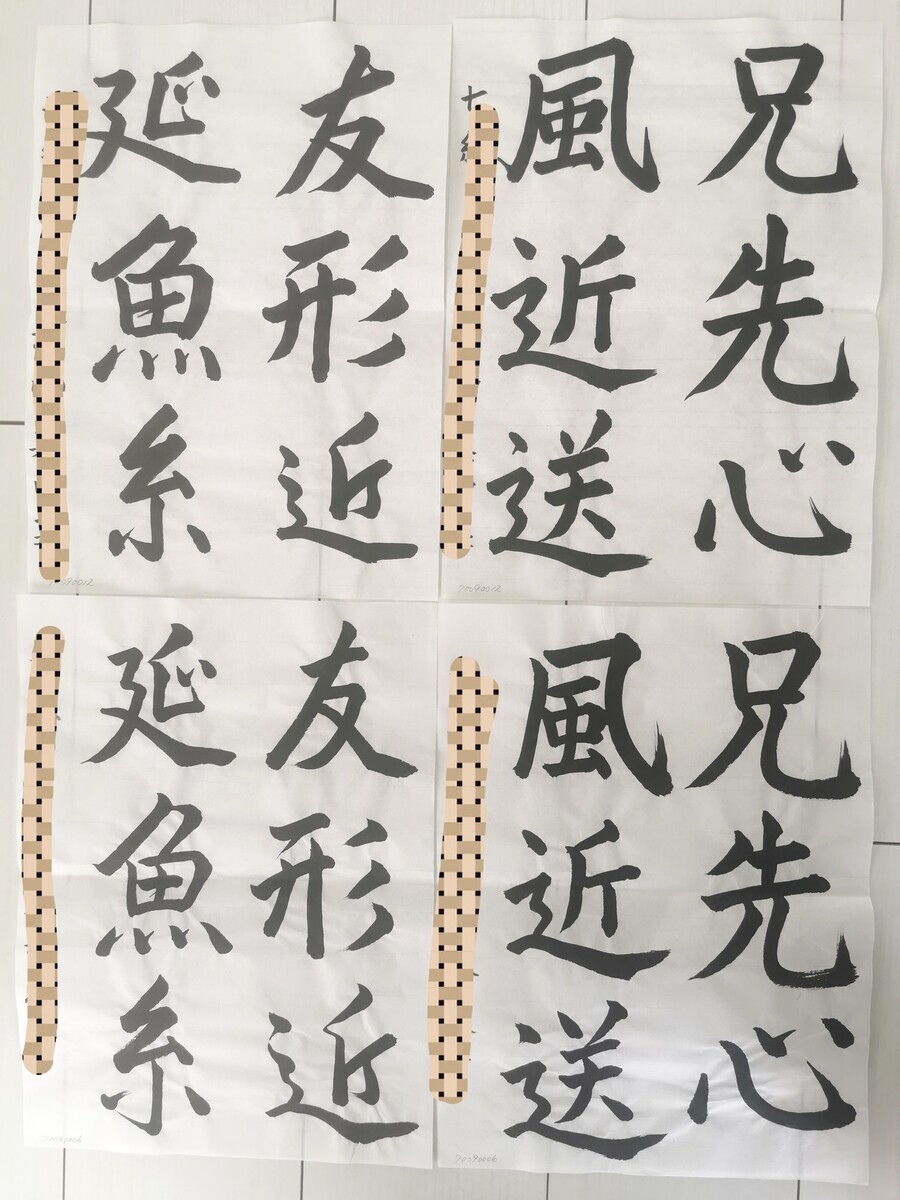 兄先心
風近送
十
友形近
延魚糸
兄先心
風近送
友形近
延魚糸